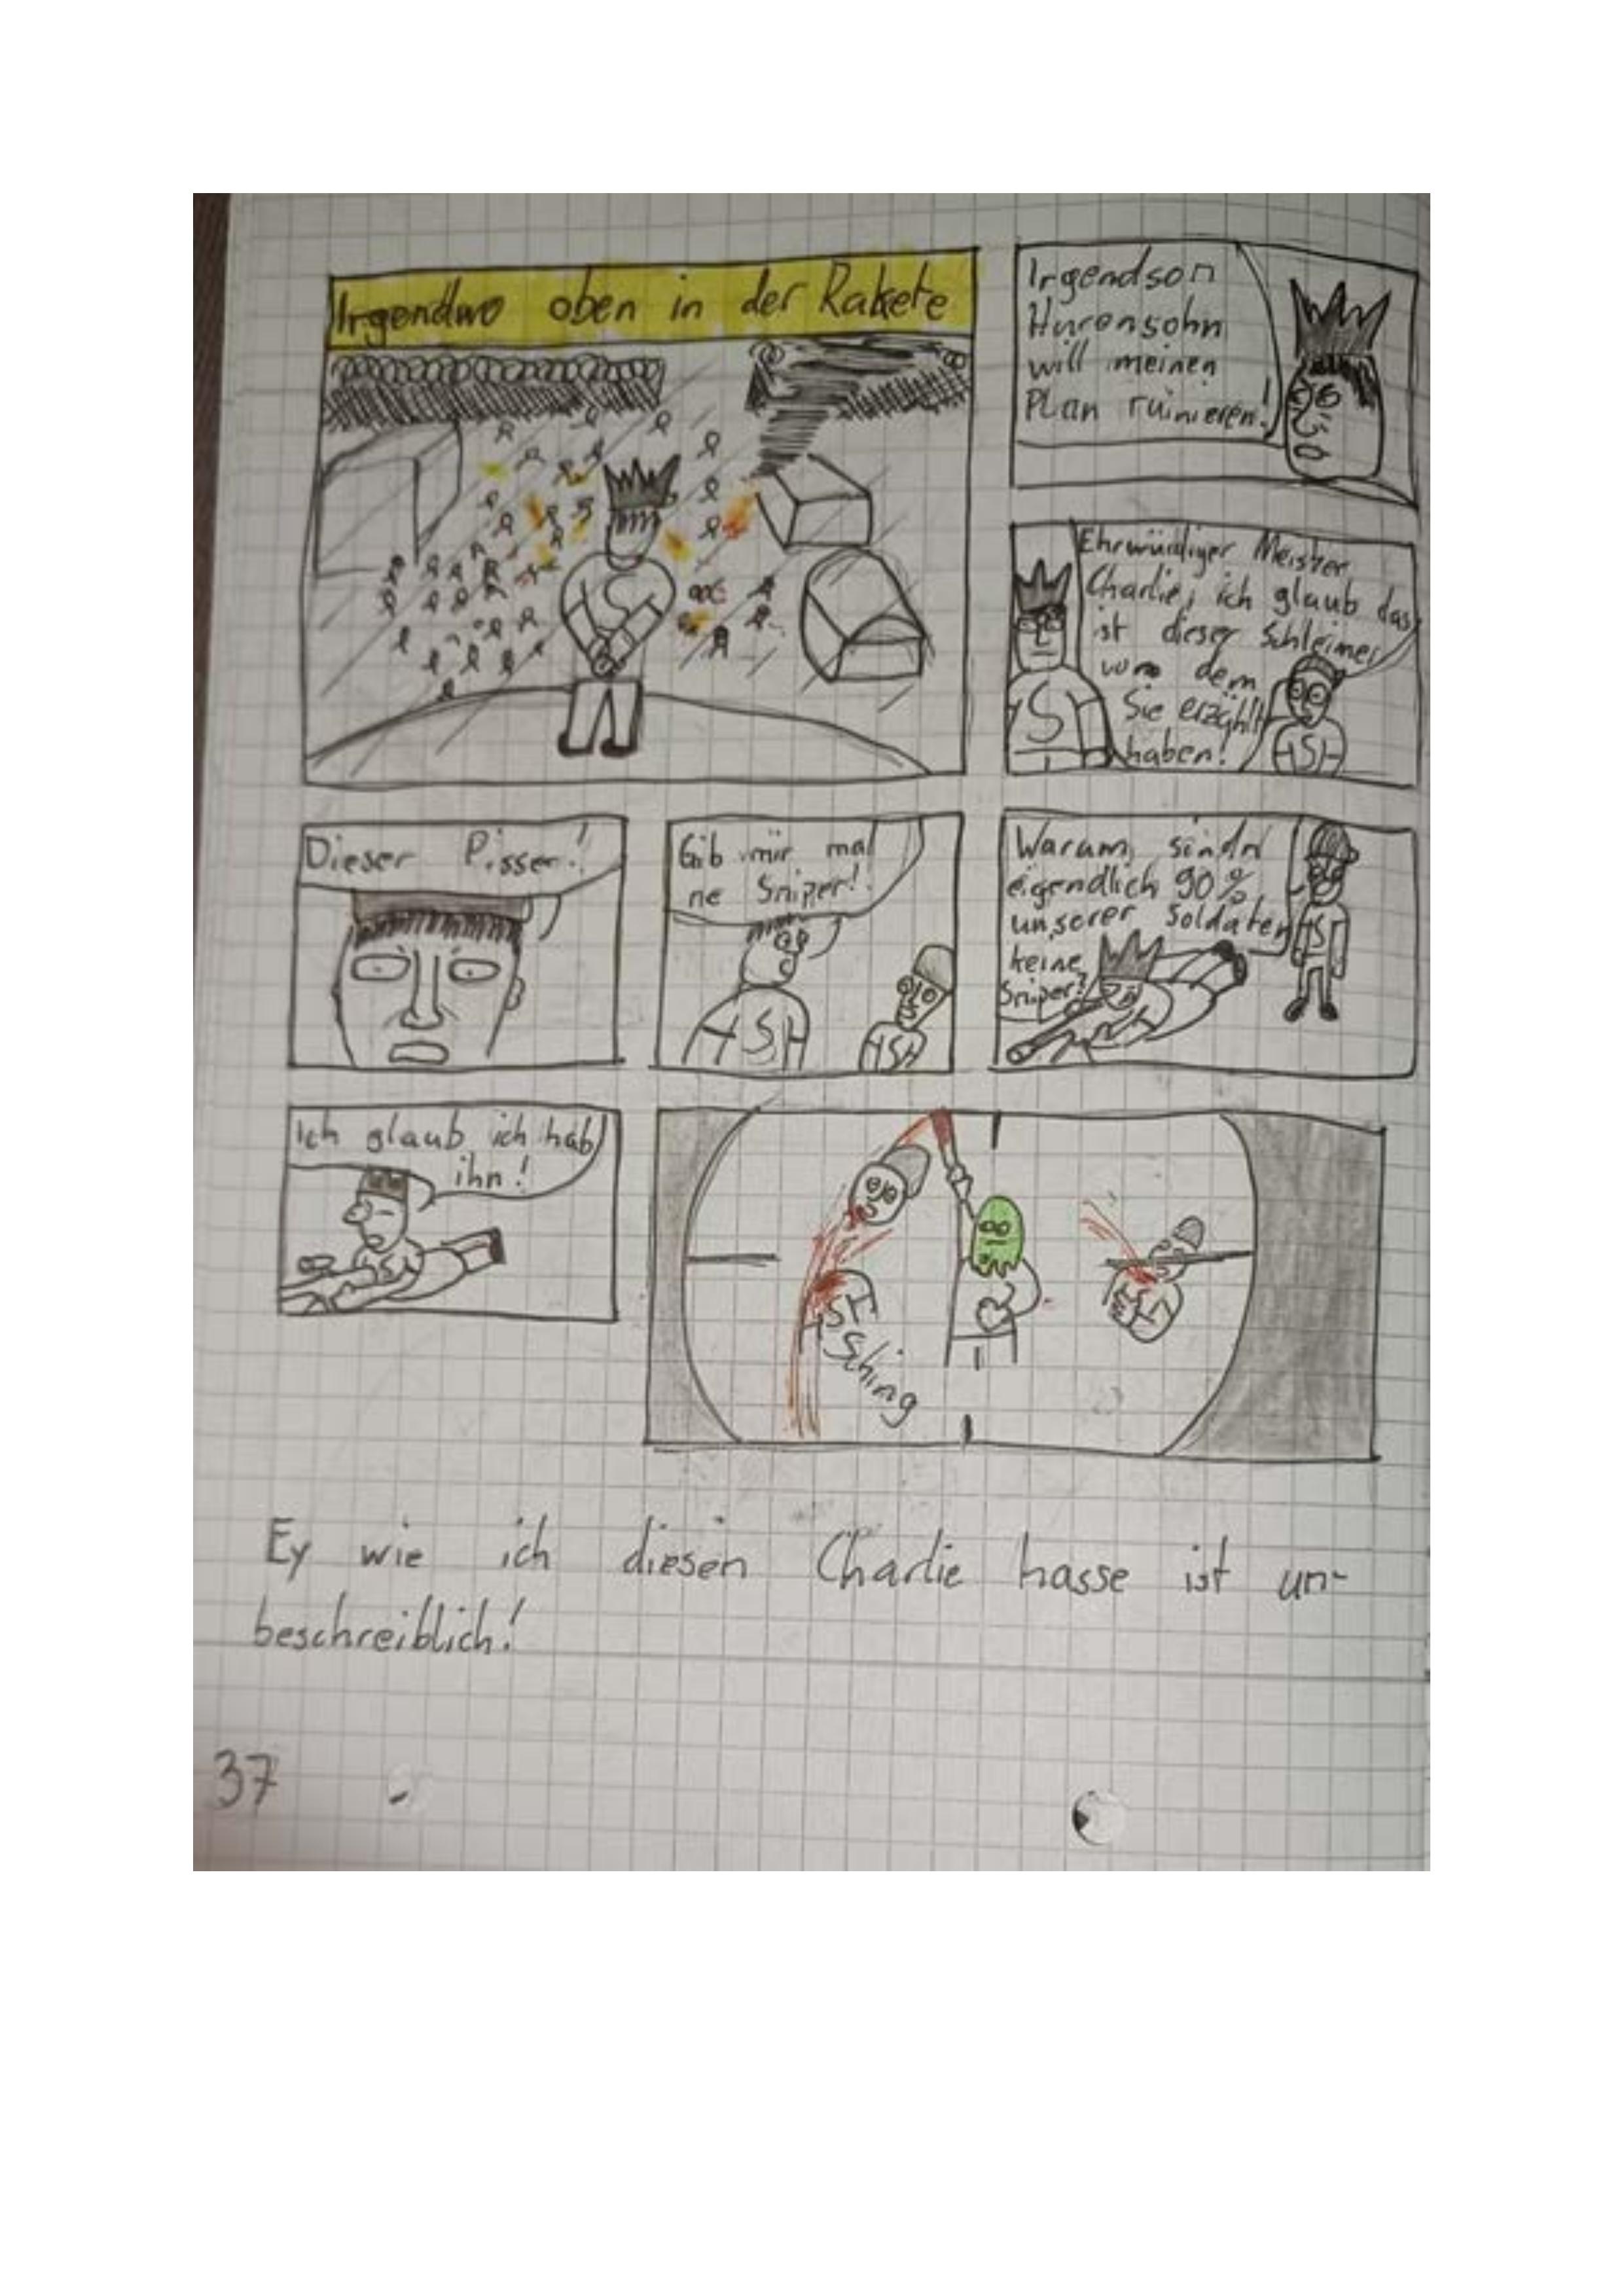 Irgendwo oben in der Rakete
Irgendson
Hurensohn
will meinen
Plan ruinieren!
S
Ehrwürdiger Meister
Charlie, ich glaub das
ist dieser Schleimer
von dem
Sie erzählt
haben!
S
S
Dieser Pisser!
Gib mir mal
ne Sniper!
S
S
Warum sindn
eigendlich 90%
unserer Soldaten
keine
Sniper?
S
Ich glaub ich hab
ihn!
S
S
Sching
Ey wie ich diesen Charlie hasse ist un-
beschreiblich!
37